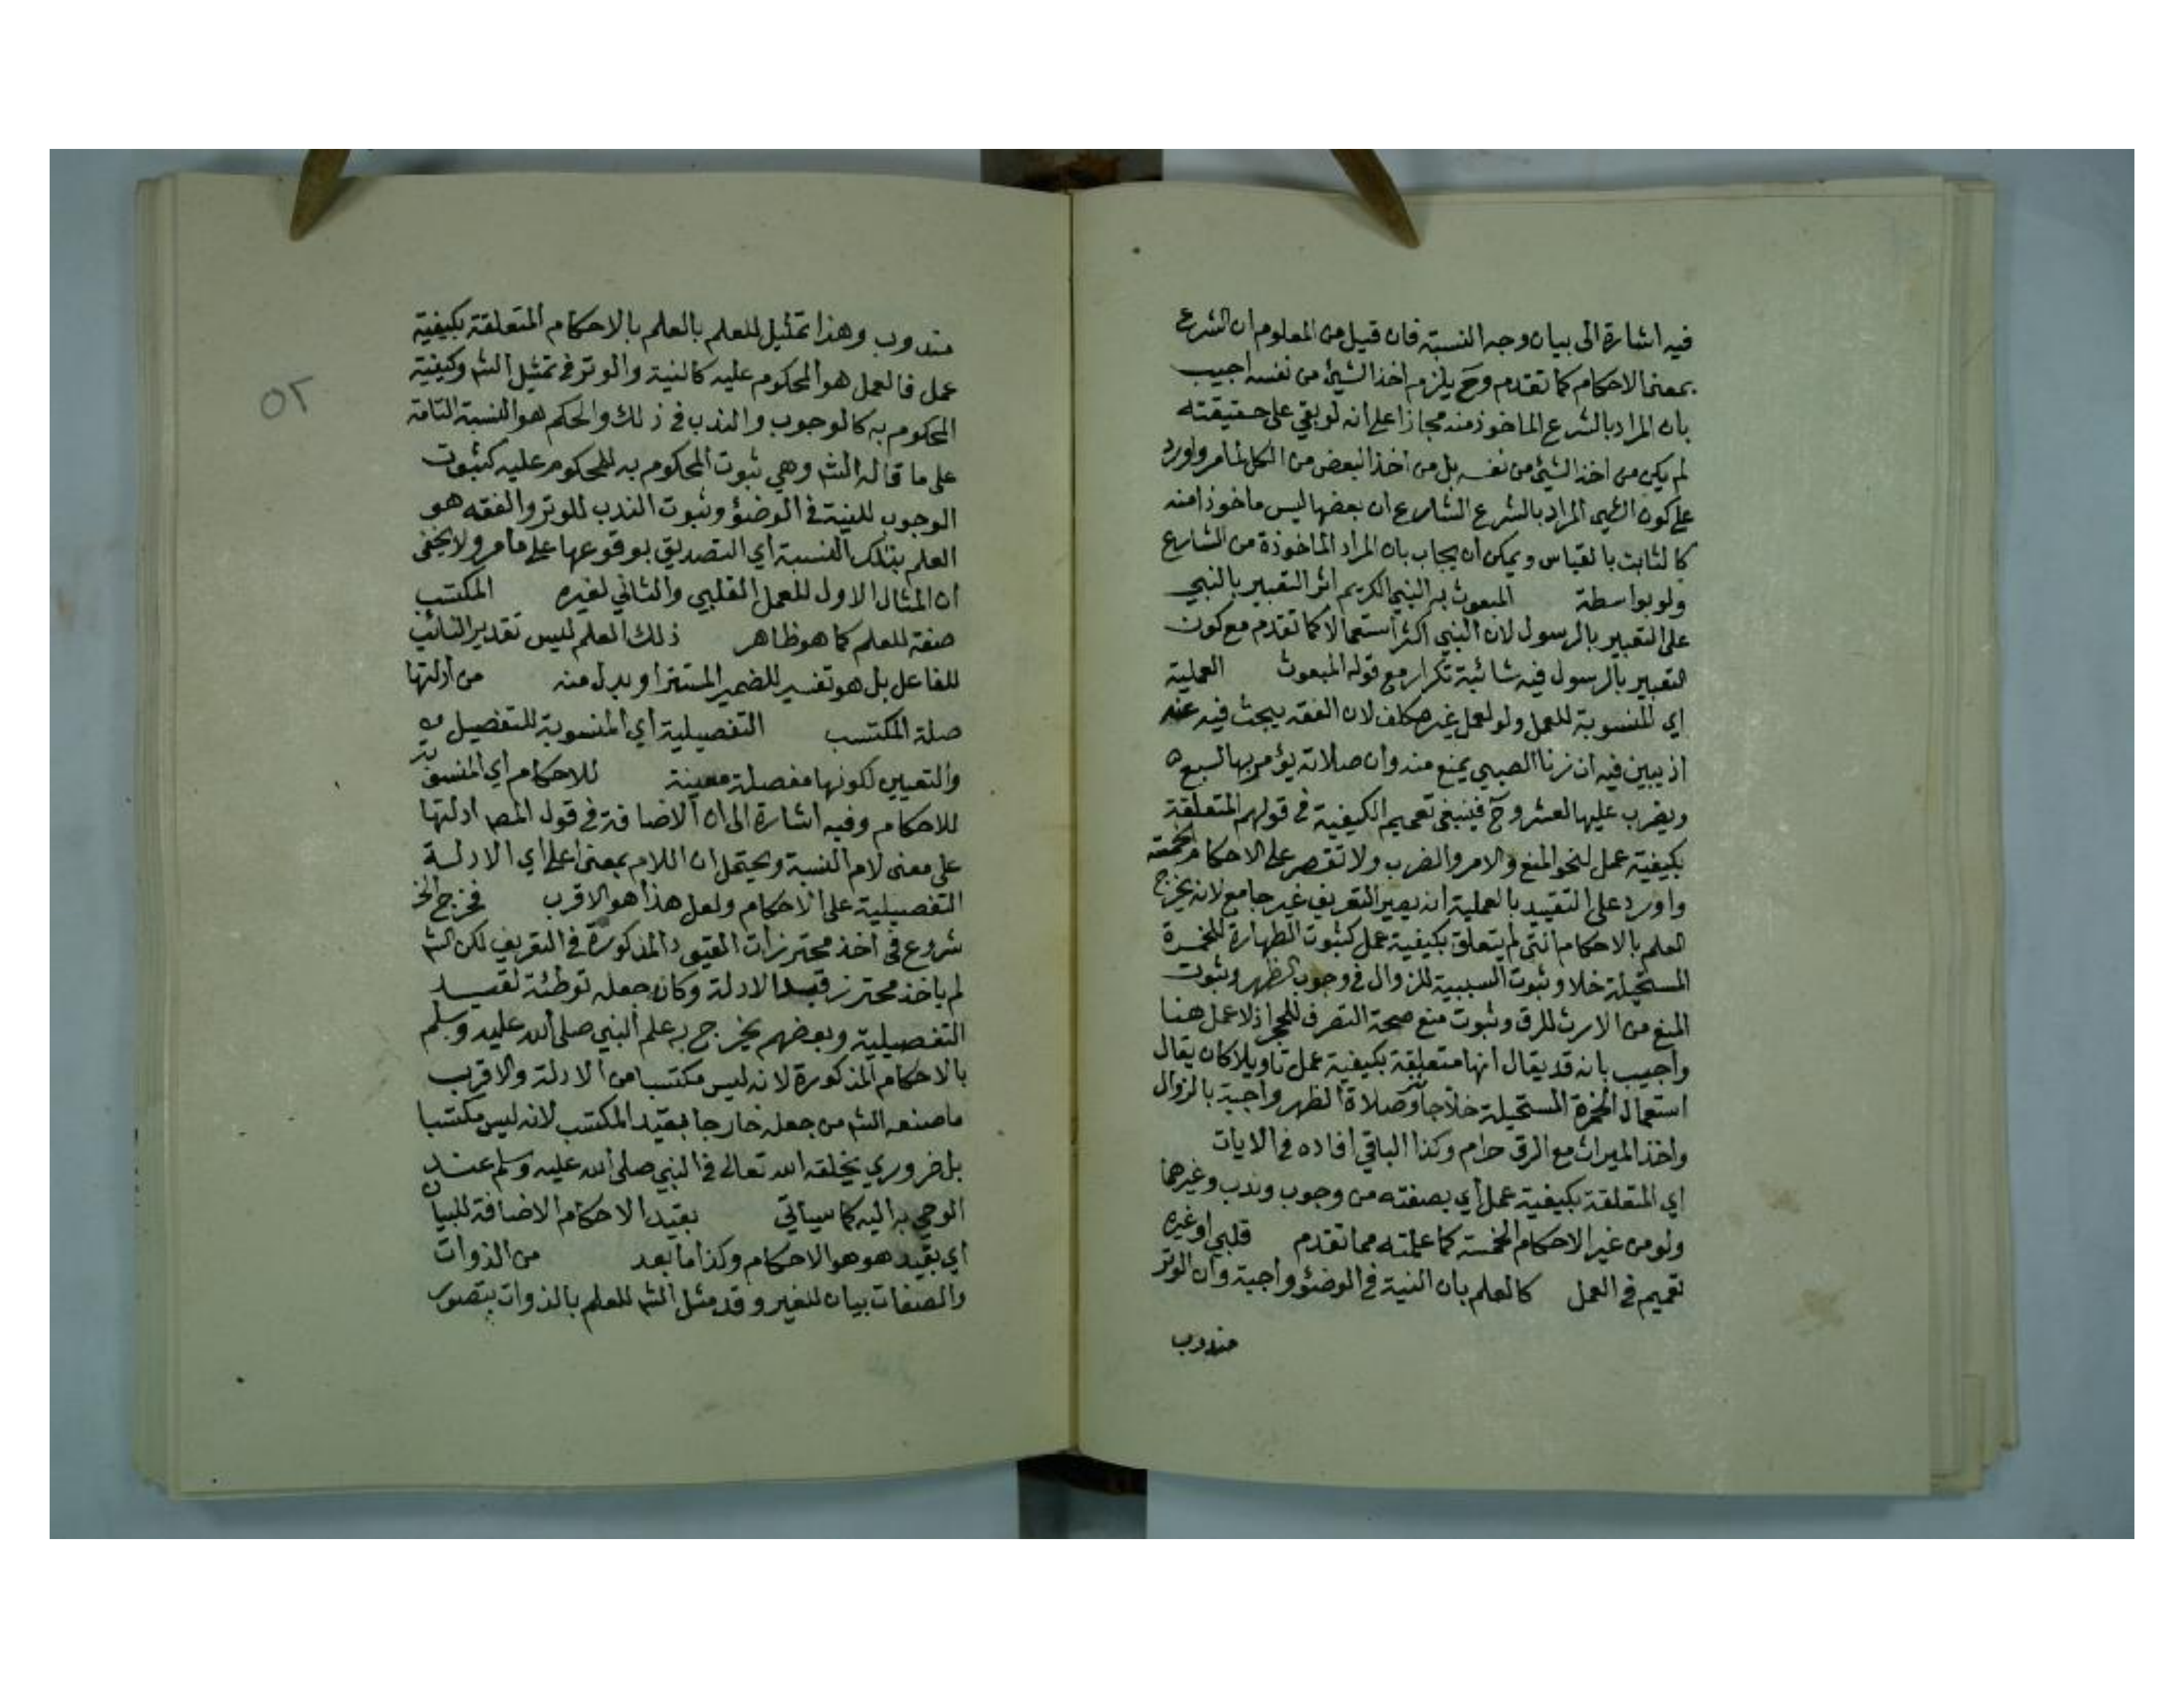 فيه اشارة الى بيان وجه النسبة فان قيل من المعلوم ان الشرع
بمعنى الاحكام كما تقدم وح يلزم اخذ الشيئ من نفسه اجيب
بان المراد بالشرع الماخوذ منه مجازا على انه لو بقي على حقيقته
لم يكن من اخذ الشيئ من نفسه بل من اخذ البعض من الكل لما مر واورد
على كون المراد بالشرع الشارع ان بعضها ليس ماخوذا منه
كالثابت بالقياس ويمكن ان يجاب بان المراد الماخوذة من الشارع
ولو بواسطة المبعوث به النبي الكريم اثر التعبير بالنبي
على التعبير بالرسول لان النبي اكثر استعمالا كما تقدم مع كون
التعبير بالرسول فيه شائبة تكرار مع قوله المبعوث العملية
اي المنسوبة للعمل ولو لعمل غير مكلف لان الفقه يبحث فيه عنه
اذ يبين فيه ان زنا الصبي يمنع منه وان صلاته يؤمر بها لسبع
ويضرب عليها لعشر وح فينبغي تعميم الكيفية في قولهم المتعلقة
بكيفية عمل لنحو المنع والامر والضرب ولا تقصر على الاحكام الخمسة
واورد على التقييد بالعملية انه يصير التعريف غير جامع لانه يخرج
العلم بالاحكام التي لم يتعلق بكيفية عمل كثبوت الطهارة للخمرة
المستحيلة خلا وثبوت السببية للزوال في وجوب الظهر وثبوت
المنع من الارث للرق وثبوت منع صحة التصرف للحجر اذ لا عمل هنا
واجيب بانه قد يقال انها متعلقة بكيفية عمل تاويلا كان يقال
استعمال الخمرة المستحيلة خلا جائز وصلاة الظهر واجبة بالزوال
واخذ الميراث مع الرق حرام وكذا الباقي افاده في الايات
اي المتعلقة بكيفية عمل أي بصفته من وجوب وندب وغيرهما
ولو من غير الاحكام الخمسة كما علمته مما تقدم قلبي او غيره
تعميم في العمل كالعلم بان النية في الوضؤ واجبة وان الوتر
مندوب
مندوب وهذا تمثيل للعلم بالعلم بالاحكام المتعلقة بكيفية
عمل فالعمل هو المحكوم عليه كالنية والوتر في تمثيل الشم وكيفية
المحكوم به كالوجوب والندب في ذلك والحكم هو النسبة التامة
على ما قاله الشم وهي ثبوت المحكوم به للمحكوم عليه كثبوت
الوجوب للنية في الوضؤ وثبوت الندب للوتر والفقه هو
العلم بتلك النسبة أي التصديق بوقوعها على ما مر ولا يخفى
ان المثال الاول للعمل القلبي والثاني لغيره المكتسب
صفة للعلم كما هو ظاهر ذلك العلم ليس تقدير النائب
للفاعل بل هو تفسير للضمير المستتر او بدل منه من أدلتها
صلة المكتسب التفصيلية أي المنسوبة للتفصيل
والتعيين لكونها مفصلة معينة للاحكام أي المنسوبة
للاحكام وفيه اشارة الى ان الاضافة في قول المصم ادلتها
على معنى لام النسبة ويحتمل ان اللام بمعنى على اي الادلة
التفصيلية على الاحكام ولعل هذا هو الاقرب فخرج الخ
شروع في اخذ محترزات القيود المذكورة في التعريف لكن الشم
لم ياخذ محترز قيد الادلة وكانه جعله توطئة لقيد
التفصيلية وبعضهم يخرج به علم النبي صلى الله عليه وسلم
بالاحكام المذكورة لانه ليس مكتسبا من الادلة والاقرب
ما صنعه الشم من جعله خارجا بقيد المكتسب لانه ليس مكتسبا
بل ضروري يخلقه الله تعالى في النبي صلى الله عليه وسلم عند
الوحي به اليه كما سياتي بقيد الاحكام الاضافة للبيان
أي بقيد هو هو الاحكام وكذا ما بعد من الذوات
والصفات بيان للغير وقد مثل الشم للعلم بالذوات بتصور
٥٢